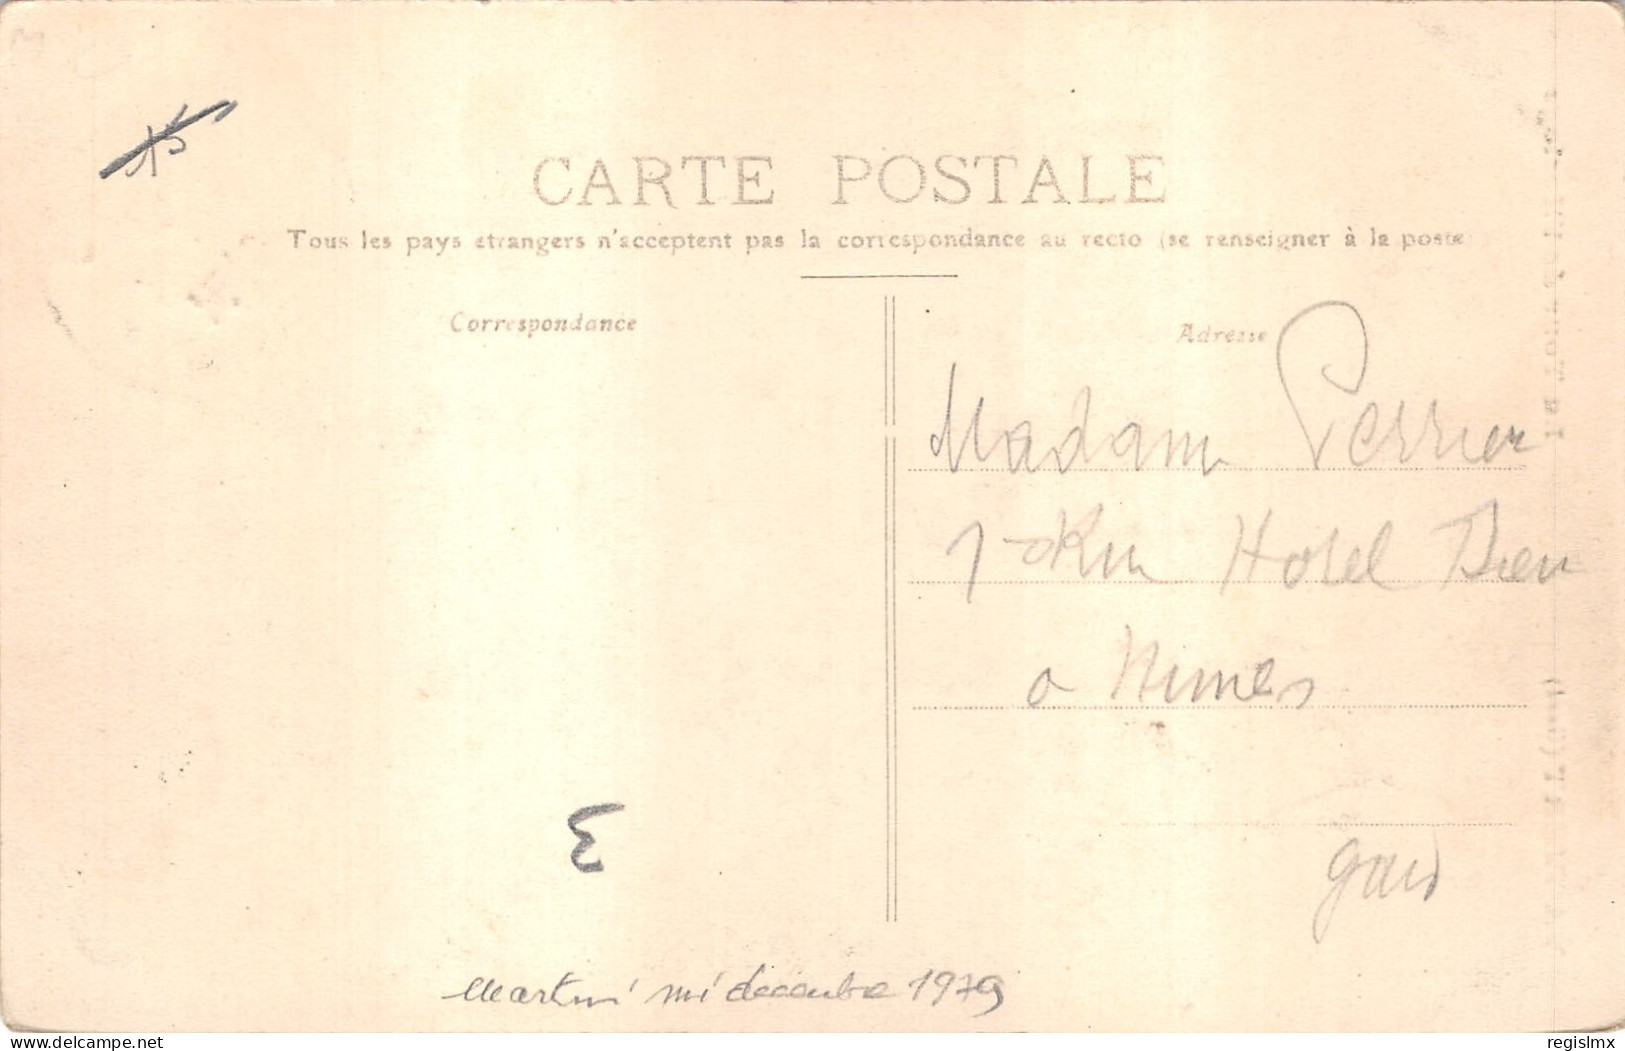 CARTE POSTALE
Tous les pays etrangers n'acceptent pas la correspondance au recto (se renseigner à la poste
Correspondance
Adresse
Madam Perrier
Hotel Dieu
a Nimes
gard
Martini mi decembre 1979
delcampe.net
regislmx